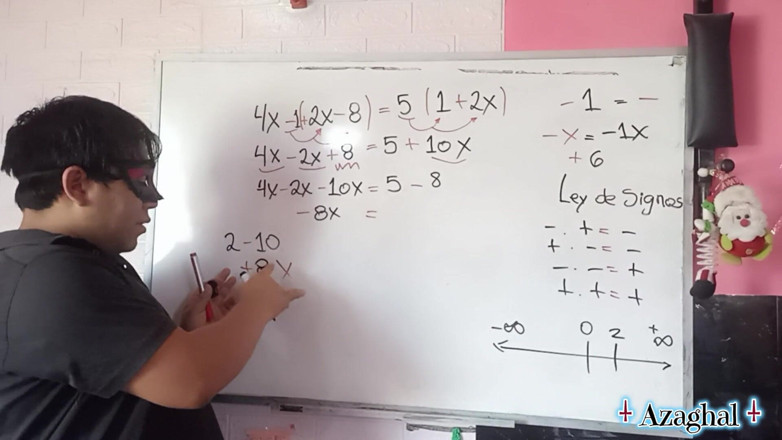 4x-1(+2x-8) = 5 (1+2x)
4x-2x+8 = 5+10x
4x-2x-10x = 5-8
-8x =
2-10
8 x
-1 = -
-x = -1x
+6
Ley de Signos
- . + = -
+ . - = -
- . - = +
+ . + = +
-∞ 0 2 +∞
Azaghal